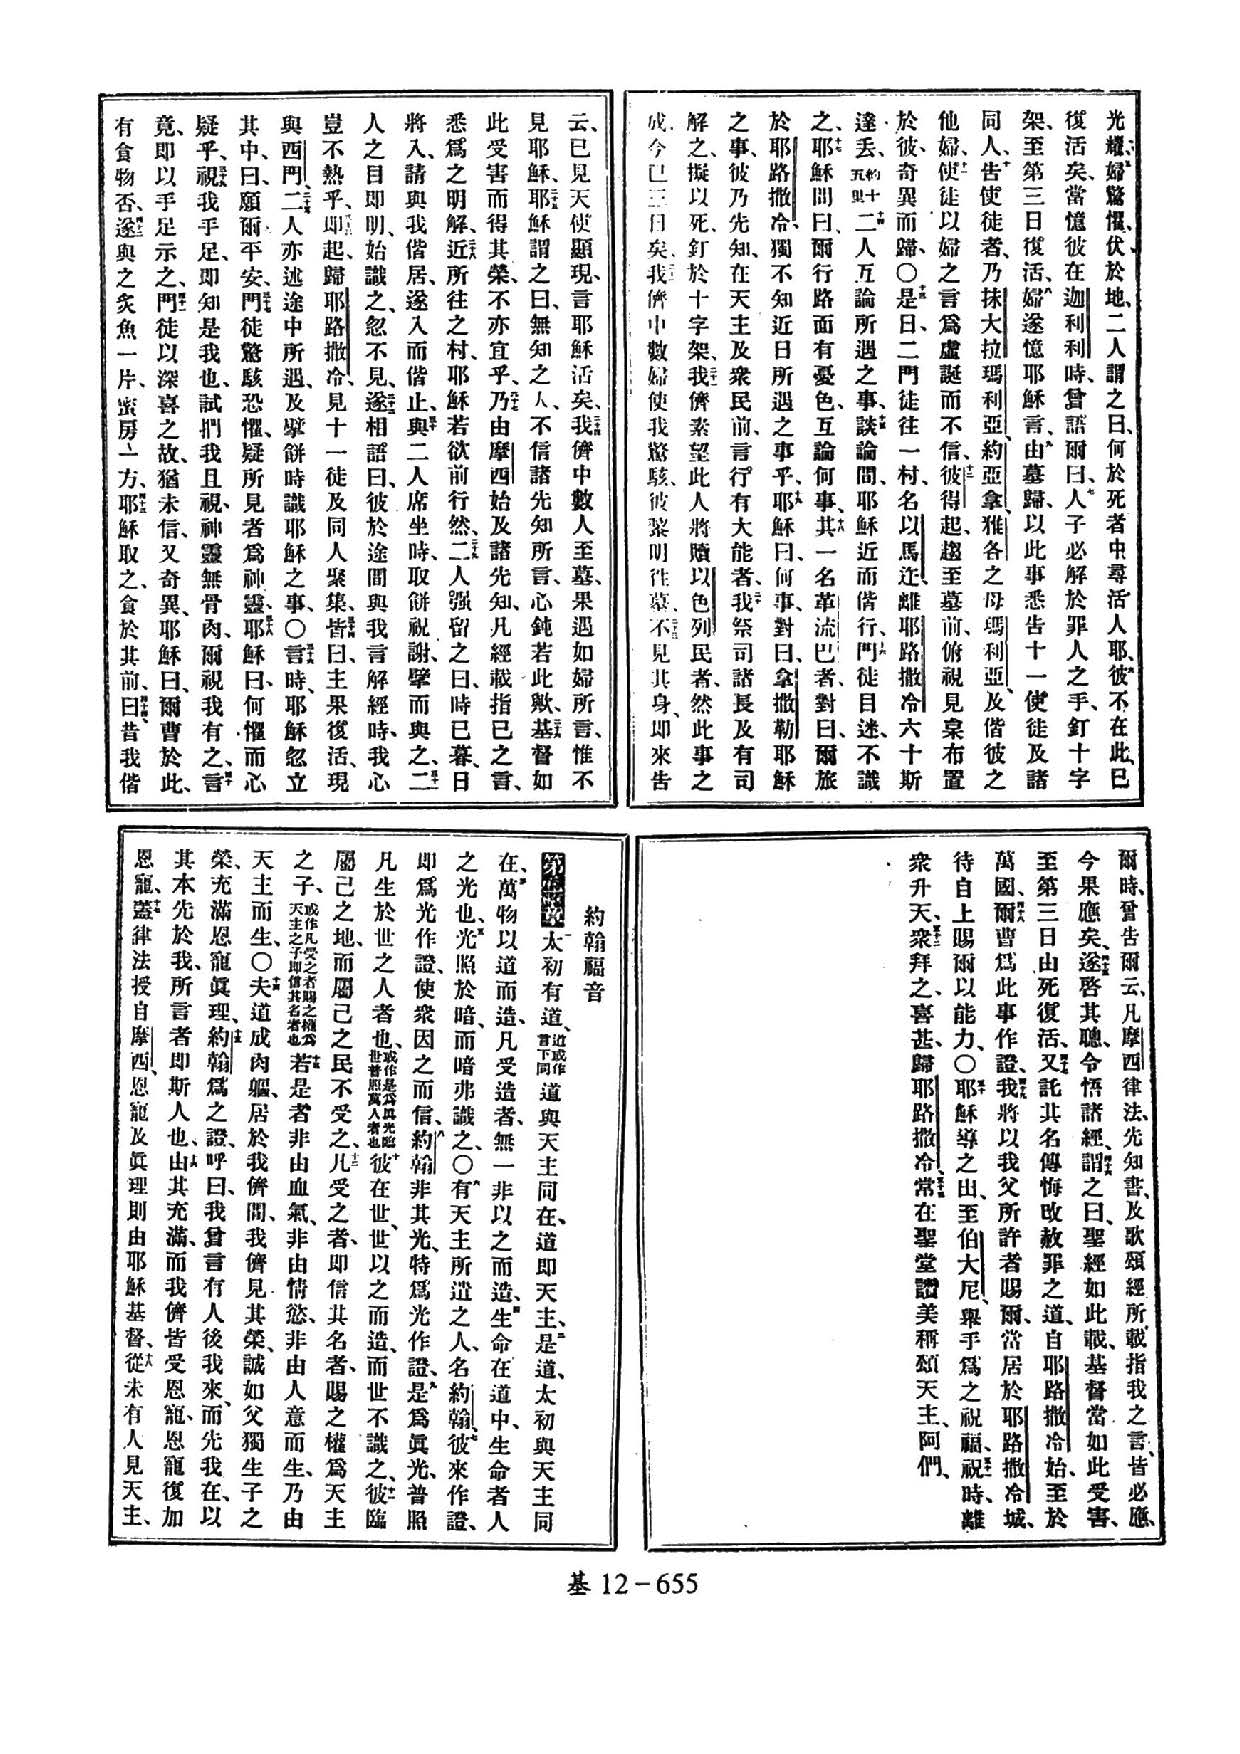 光耀、婦驚懼、伏於地、二人謂之曰、何於死者中尋活人耶、彼不在此、已
復活矣、當憶彼在迦利利時、曾語爾曰、人子必解於罪人之手、釘十字
架、至第三日復活、婦遂憶耶穌言、由墓歸、以此事悉告十一使徒及諸
同人、告使徒者、乃抹大拉瑪利亞、約亞拿、雅各之母瑪利亞、及偕彼之
他婦、使徒以婦之言爲虛誕而不信、彼得起、趨至墓前、俯視見枲布置
於彼、奇異而歸、〇是日、二門徒往一村、名以馬迕、離耶路撒冷六十斯
達丟、約十五里二人互論所遇之事、談論間、耶穌近而偕行、門徒目迷不識
之、耶穌問曰、爾行路面有憂色、互論何事、其一名革流巴者、對曰、爾旅
於耶路撒冷、獨不知近日所遇之事乎、耶穌曰、何事、對曰、拿撒勒耶穌
之事、彼乃先知、在天主及衆民前、言行有大能者、我祭司諸長及有司
解之、擬以死、釘於十字架、我儕素望此人將贖以色列民者、然此事之
成、今已三日矣、我儕中數婦使我驚駭、彼黎明往墓、不見其身、即來告
云、已見天使顯現、言耶穌活矣、我儕中數人至墓、果遇如婦所言、惟不
見耶穌、耶穌謂之曰、無知之人、不信諸先知所言、心鈍若此歟、基督如
此受害而得其榮、不亦宜乎、乃由摩西始、及諸先知、凡經載指己之言、
悉爲之明解、近所往之村、耶穌若欲前行然、二人强留之曰、時已暮、日
將入、請與我偕居、遂入而偕止、與二人席坐時、取餅祝謝、擘而與之、二
人之目即明、始識之、忽不見、遂相語曰、彼於途間與我言解經時、我心
豈不熱乎、即起、歸耶路撒冷、見十一徒及同人聚集、皆曰、主果復活、現
與西門、二人亦述途中所遇、及擘餅時識耶穌之事、〇言時、耶穌忽立
其中、曰、願爾平安、門徒驚駭恐懼、疑所見者爲神靈、耶穌曰、何懼而心
疑乎、視我手足、即知是我也、試捫我且視、神靈無骨肉、爾視我有之、言
竟、即以手足示之、門徒以深喜之故、猶未信、又奇異、耶穌曰、爾曹於此、
有食物否、遂與之炙魚一片、蜜房一方、耶穌取之、食於其前、曰、昔我偕
爾時、曾告爾云、凡摩西律法、先知書、及歌頌經所載指我之言、皆必應、
今果應矣、遂啓其聰、令悟諸經、謂之曰、聖經如此載、基督當如此受害、
至第三日由死復活、又託其名傳悔改赦罪之道、自耶路撒冷始、至於
萬國、爾曹爲此事作證、我將以我父所許者賜爾、當居於耶路撒冷城、
待自上賜爾以能力、〇耶穌導之出、至伯大尼、舉手爲之祝福、祝時、離
衆升天、衆拜之、喜甚、歸耶路撒冷、常在聖堂讚美稱頌天主、阿們、
約翰福音
第一章太初有道、道或作言下同道與天主同在、道即天主、是道、太初與天主同
在、萬物以道而造、凡受造者、無一非以之而造、生命在道中、生命者人
之光也、光照於暗、而暗弗識之、〇有天主所遣之人、名約翰、彼來作證、
即爲光作證、使衆因之而信、約翰非其光、特爲光作證、是爲眞光、普照
凡生於世之人者也、或作是爲眞光臨世普照萬人者也彼在世、世以之而造、而世不識之、彼臨
屬己之地、而屬己之民不受之、凡受之者、即信其名者、賜之權爲天主
之子、或作凡受之者賜之權爲天主之子即信其名者也若是者非由血氣、非由情慾、非由人意而生、乃由
天主而生、〇夫道成肉軀、居於我儕間、我儕見其榮、誠如父獨生子之
榮、充滿恩寵眞理、約翰爲之證、呼曰、我曾言有人後我來、而先我在、以
其本先於我、所言者即斯人也、由其充滿、而我儕皆受恩寵、恩寵復加
恩寵、蓋律法授自摩西、恩寵及眞理則由耶穌基督、從未有人見天主、
基12－655